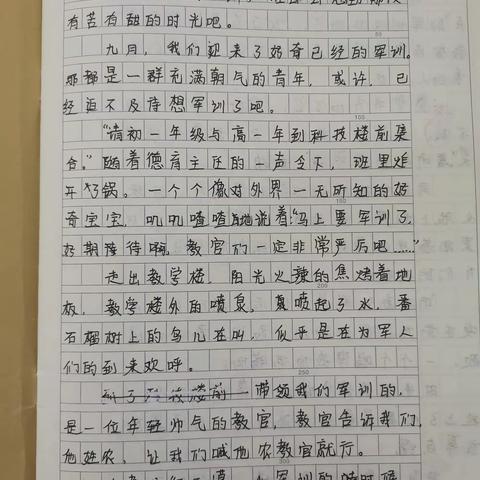 有苦有甜的时光吧。
九月，我们迎来了好奇已经的军训。
那都是一群充满朝气的青年，或许，已
经迫不及待想军训了吧。
100
“请初一年级与高一年到科技楼前集
合。”随着德育主任的一声令下，班里炸
开了锅。一个个像对外界一无所知的好
奇宝宝，叽叽喳喳地说着：“马上要军训了，
好期待待啊，教官们一定非常严厉吧……”
走出教学楼，阳光火辣的焦烤着地
200
板，教学楼外的喷泉，喷起了水，番
石榴树上的鸟儿在叫，似乎是在为军人
们的到来欢呼。
250
带领我们军训的，
是一位年轻帅气的教官，教官告诉我们，
他姓农，让我们喊他农教官就行。
300